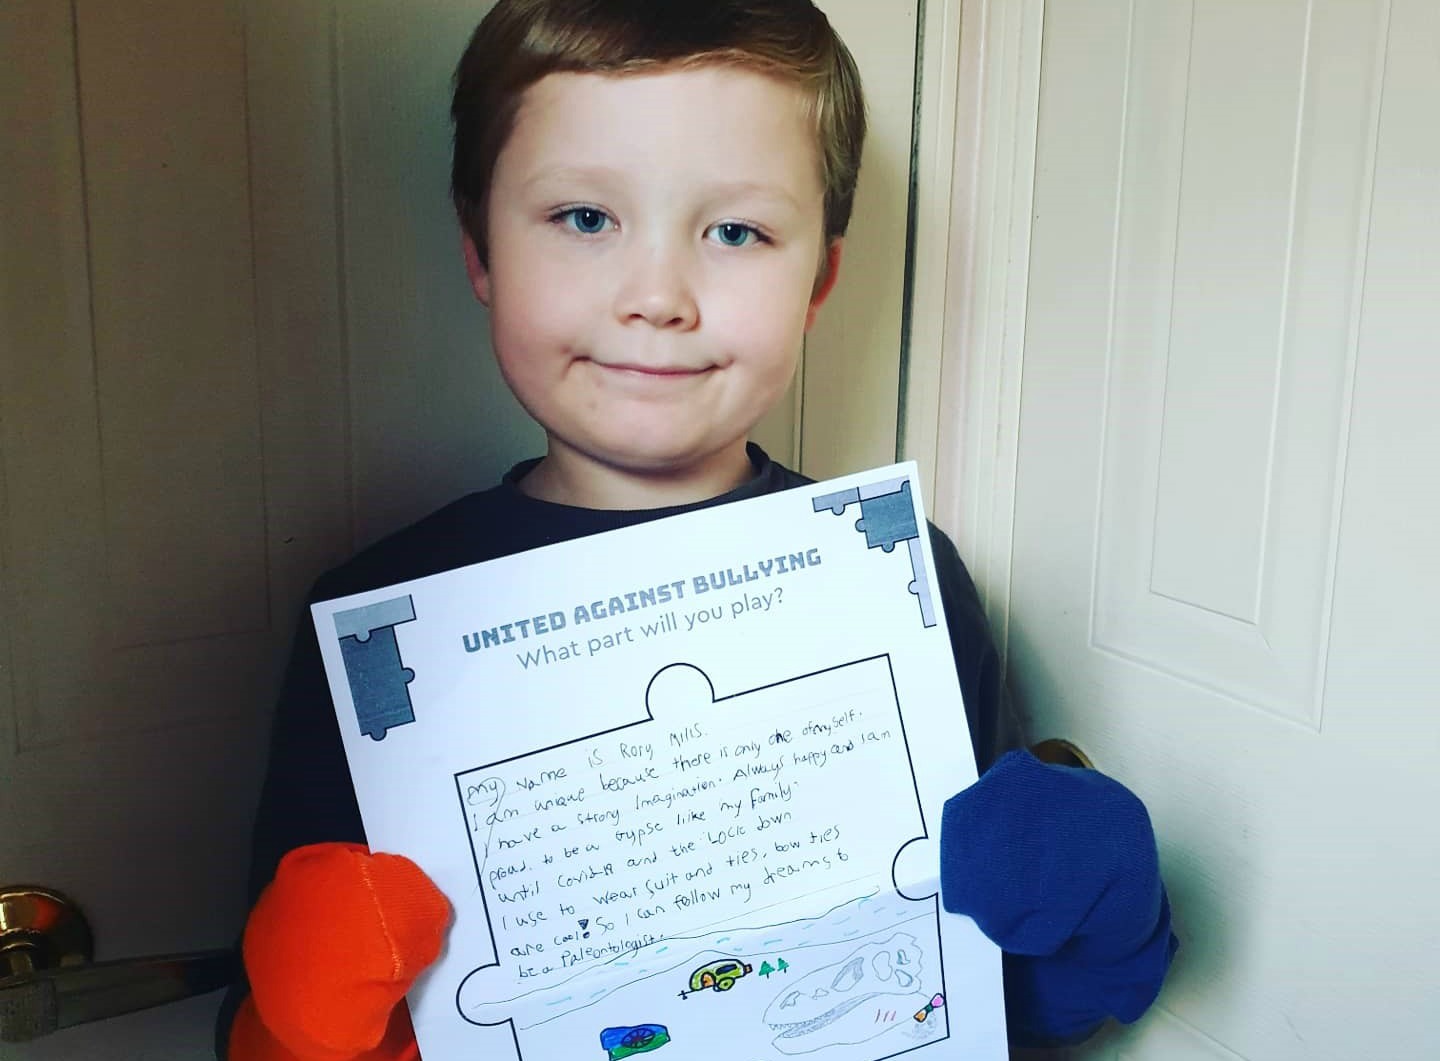 UNITED AGAINST BULLYING
What part will you play?
my Name is Rory Mills.
I am unique because there is only one of myself.
I have a strong Imagination. Always happy and I am
proud. to be a Gypse like my family.
until Covid-19 and the Lock down
I use to wear Suit and ties. bow ties
are cool! So I can follow my dreams to
be a Paleontologist.